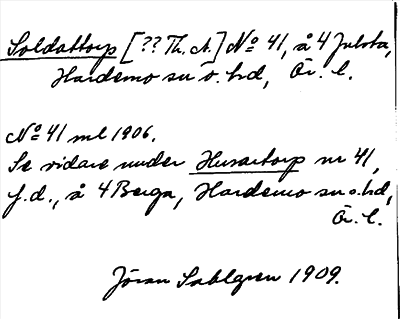 Soldattorp [?? Th. A.] No 41, å 4 Julsta,
Hardemo sn o. hd, Ör. l.
No 41 ml 1906.
Se vidare under Husartorp nr 41,
f.d., å 4 Berga, Hardemo sn o. hd,
Ör. l.
Jöran Sahlgren 1909.